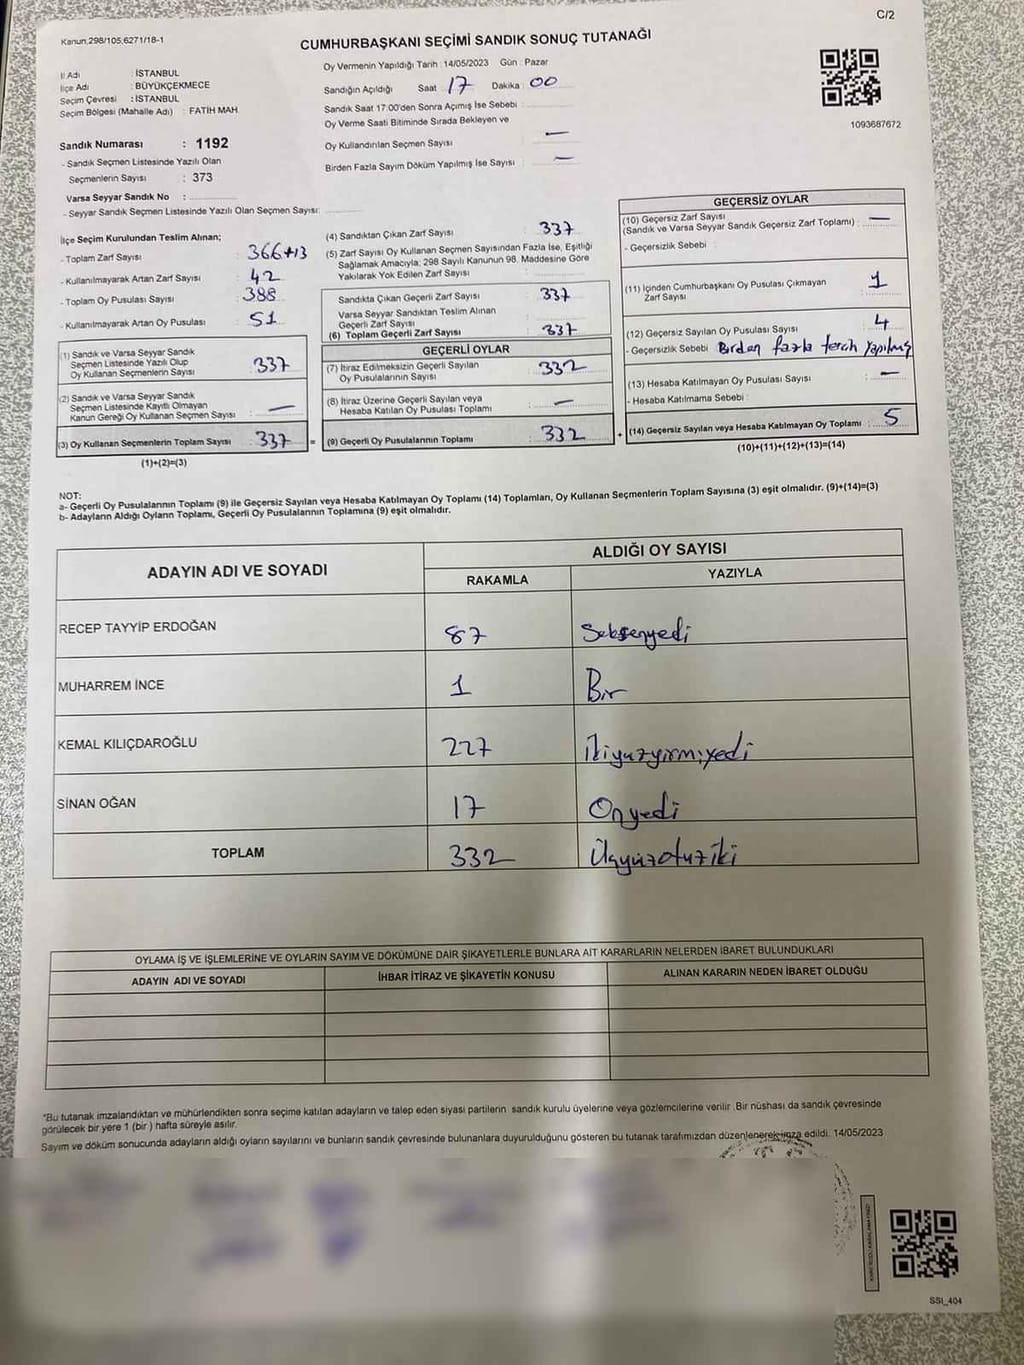 C/2
Kanun.298/105,6271/18-1
CUMHURBAŞKANI SEÇİMİ SANDIK SONUÇ TUTANAĞI
İl Adı : İSTANBUL
İlçe Adı : BÜYÜKÇEKMECE
Seçim Çevresi : İSTANBUL
Seçim Bölgesi (Mahalle Adı) : FATİH MAH.
Sandık Numarası : 1192
- Sandık Seçmen Listesinde Yazılı Olan
Seçmenlerin Sayısı : 373
Varsa Seyyar Sandık No :
- Seyyar Sandık Seçmen Listesinde Yazılı Olan Seçmen Sayısı:
Oy Vermenin Yapıldığı Tarih : 14/05/2023 Gün : Pazar
Sandığın Açıldığı Saat 17 Dakika : 00
Sandık Saat 17:00'den Sonra Açılmış İse Sebebi :
Oy Verme Saati Bitiminde Sırada Bekleyen ve
Oy Kullandırılan Seçmen Sayısı : —
Birden Fazla Sayım Döküm Yapılmış İse Sayısı : —
1093687672
İlçe Seçim Kurulundan Teslim Alınan;
- Toplam Zarf Sayısı : 366+13
- Kullanılmayarak Artan Zarf Sayısı : 42
- Toplam Oy Pusulası Sayısı : 388
- Kullanılmayarak Artan Oy Pusulası : 51
(1) Sandık ve Varsa Seyyar Sandık
Seçmen Listesinde Yazılı Olup
Oy Kullanan Seçmenlerin Sayısı : 337
(2) Sandık ve Varsa Seyyar Sandık
Seçmen Listesinde Kayıtlı Olmayan
Kanun Gereği Oy Kullanan Seçmen Sayısı : —
(3) Oy Kullanan Seçmenlerin Toplam Sayısı : 337
(1)+(2)=(3)
(4) Sandıktan Çıkan Zarf Sayısı : 337
(5) Zarf Sayısı Oy Kullanan Seçmen Sayısından Fazla İse, Eşitliği
Sağlamak Amacıyla; 298 Sayılı Kanunun 98. Maddesine Göre
Yakılarak Yok Edilen Zarf Sayısı :
Sandıkta Çıkan Geçerli Zarf Sayısı : 337
Varsa Seyyar Sandıktan Teslim Alınan
Geçerli Zarf Sayısı :
(6) Toplam Geçerli Zarf Sayısı : 337
GEÇERLİ OYLAR
(7) İtiraz Edilmeksizin Geçerli Sayılan
Oy Pusulalarının Sayısı : 332
(8) İtiraz Üzerine Geçerli Sayılan veya
Hesaba Katılan Oy Pusulası Toplamı : —
= (9) Geçerli Oy Pusulalarının Toplamı : 332
GEÇERSİZ OYLAR
(10) Geçersiz Zarf Sayısı
(Sandık ve Varsa Seyyar Sandık Geçersiz Zarf Toplamı) : —
- Geçersizlik Sebebi :
(11) İçinden Cumhurbaşkanı Oy Pusulası Çıkmayan
Zarf Sayısı : 1
(12) Geçersiz Sayılan Oy Pusulası Sayısı : 4
- Geçersizlik Sebebi : Birden fazla tercih yapılmış
(13) Hesaba Katılmayan Oy Pusulası Sayısı : —
- Hesaba Katılmama Sebebi :
+ (14) Geçersiz Sayılan veya Hesaba Katılmayan Oy Toplamı : 5
(10)+(11)+(12)+(13)=(14)
NOT:
a- Geçerli Oy Pusulalarının Toplamı (9) ile Geçersiz Sayılan veya Hesaba Katılmayan Oy Toplamı (14) Toplamları, Oy Kullanan Seçmenlerin Toplam Sayısına (3) eşit olmalıdır. (9)+(14)=(3)
b- Adayların Aldığı Oyların Toplamı, Geçerli Oy Pusulalarının Toplamına (9) eşit olmalıdır.
ADAYIN ADI VE SOYADI
ALDIĞI OY SAYISI
RAKAMLA YAZIYLA
RECEP TAYYİP ERDOĞAN 87 Seksenyedi
MUHARREM İNCE 1 Bir
KEMAL KILIÇDAROĞLU 227 İkiyüzyirmiyedi
SİNAN OĞAN 17 Onyedi
TOPLAM 332 Üçyüzotuziki
OYLAMA İŞ VE İŞLEMLERİNE VE OYLARIN SAYIM VE DÖKÜMÜNE DAİR ŞİKAYETLERLE BUNLARA AİT KARARLARIN NELERDEN İBARET BULUNDUKLARI
ADAYIN ADI VE SOYADI İHBAR İTİRAZ VE ŞİKAYETİN KONUSU ALINAN KARARIN NEDEN İBARET OLDUĞU
*Bu tutanak imzalandıktan ve mühürlendikten sonra seçime katılan adayların ve talep eden siyasi partilerin sandık kurulu üyelerine veya gözlemcilerine verilir .Bir nüshası da sandık çevresinde
görülecek bir yere 1 (bir ) hafta süreyle asılır.
Sayım ve döküm sonucunda adayların aldığı oyların sayılarını ve bunların sandık çevresinde bulunanlara duyurulduğunu gösteren bu tutanak tarafımızdan düzenlenerek imza edildi. 14/05/2023
SSI_404